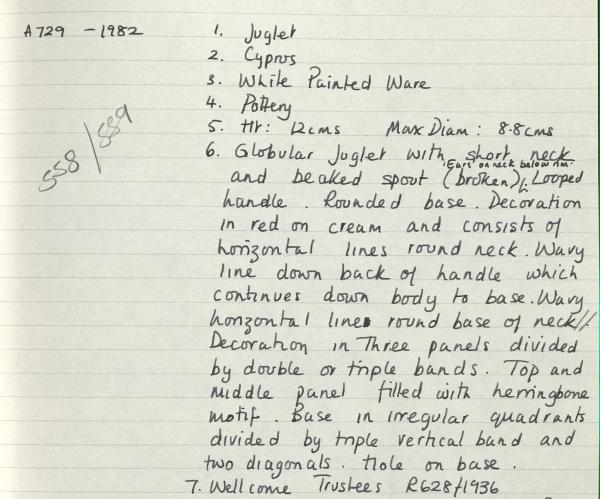 A729 - 1982
1. Juglet
2. Cyprus
3. White Painted Ware
4. Pottery
5. Ht: 12cms Max Diam: 8.8cms
6. Globular Juglet with short neck
'Ears' on neck below rim.
and beaked spout (broken), Looped
handle. Rounded base. Decoration
in red on cream and consists of
horizontal lines round neck. Wavy
line down back of handle which
continues down body to base. Wavy
horizontal lines round base of neck//
Decoration in Three panels divided
by double or triple bands. Top and
middle panel filled with herringbone
motif. Base in irregular quadrants
divided by triple vertical band and
two diagonals. Hole on base.
7. Wellcome Trustees R628/1936
558/559